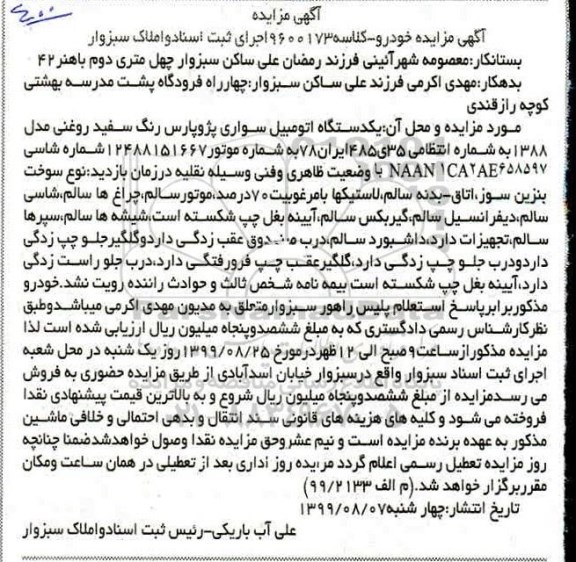 آگهی مزایده
آگهی مزایده خودرو-کلاسه۹۶۰۰۱۷۳اجرای ثبت اسنادواملاک سبزوار
بستانکار:معصومه شهرآئینی فرزند رمضان علی ساکن سبزوار چهل متری دوم باهنر۴۲
بدهکار:مهدی اکرمی فرزند علی ساکن سبزوار:چهارراه فرودگاه پشت مدرسه بهشتی
کوچه رازقندی
مورد مزایده و محل آن:یکدستگاه اتومبیل سواری پژوپارس رنگ سفید روغنی مدل
۱۳۸۸به شماره انتظامی۳۵ی۴۸۵ایران۷۸به شماره موتور۱۲۴۸۸۱۵۱۶۶۷شماره شاسی
NAAN۱CA۲AE۶۵۸۵۹۷ با وضعیت ظاهری وفنی وسیله نقلیه درزمان بازدید:نوع سوخت
بنزین سوز،اتاق-بدنه سالم،لاستیکها بامرغوبیت۷۰درصد،موتورسالم،چراغ ها سالم،شاسی
سالم،دیفرانسیل سالم،گیربکس سالم،آیینه بغل چپ شکسته است،شیشه ها سالم،سپرها
سالم،تجهیزات دارد،داشبورد سالم،درب صندوق عقب زدگی داردوگلگیرجلو چپ زدگی
داردودرب جلو چپ زدگی دارد،گلگیرعقب چپ فرورفتگی دارد،درب جلو راست زدگی
دارد،آیینه بغل چپ شکسته است بیمه نامه شخص ثالث و حوادث راننده رویت نشد.خودرو
مذکوربرابرپاسخ استعلام پلیس راهور سبزوارمتعلق به مدیون مهدی اکرمی میباشدوطبق
نظرکارشناس رسمی دادگستری که به مبلغ ششصدوپنجاه میلیون ریال ارزیابی شده است لذا
مزایده مذکورازساعت۹صبح الی ۱۲ظهردرمورخ ۱۳۹۹/۰۸/۲۵روز یک شنبه در محل شعبه
اجرای ثبت اسناد سبزوار واقع درسبزوار خیابان اسدآبادی از طریق مزایده حضوری به فروش
می رسدمزایده از مبلغ ششصدوپنجاه میلیون ریال شروع و به بالاترین قیمت پیشنهادی نقدا
فروخته می شود و کلیه های هزینه های قانونی سند انتقال و بدهی احتمالی و خلافی ماشین
مذکور به عهده برنده مزایده است و نیم عشروحق مزایده نقدا وصول خواهدشدضمنا چنانچه
روز مزایده تعطیل رسمی اعلام گردد مزایده روز اداری بعد از تعطیلی در همان ساعت ومکان
مقرربرگزار خواهد شد.(م الف ۹۹/۲۱۳۳)
تاریخ انتشار:چهار شنبه۱۳۹۹/۰۸/۰۷
علی آب باریکی-رئیس ثبت اسنادواملاک سبزوار